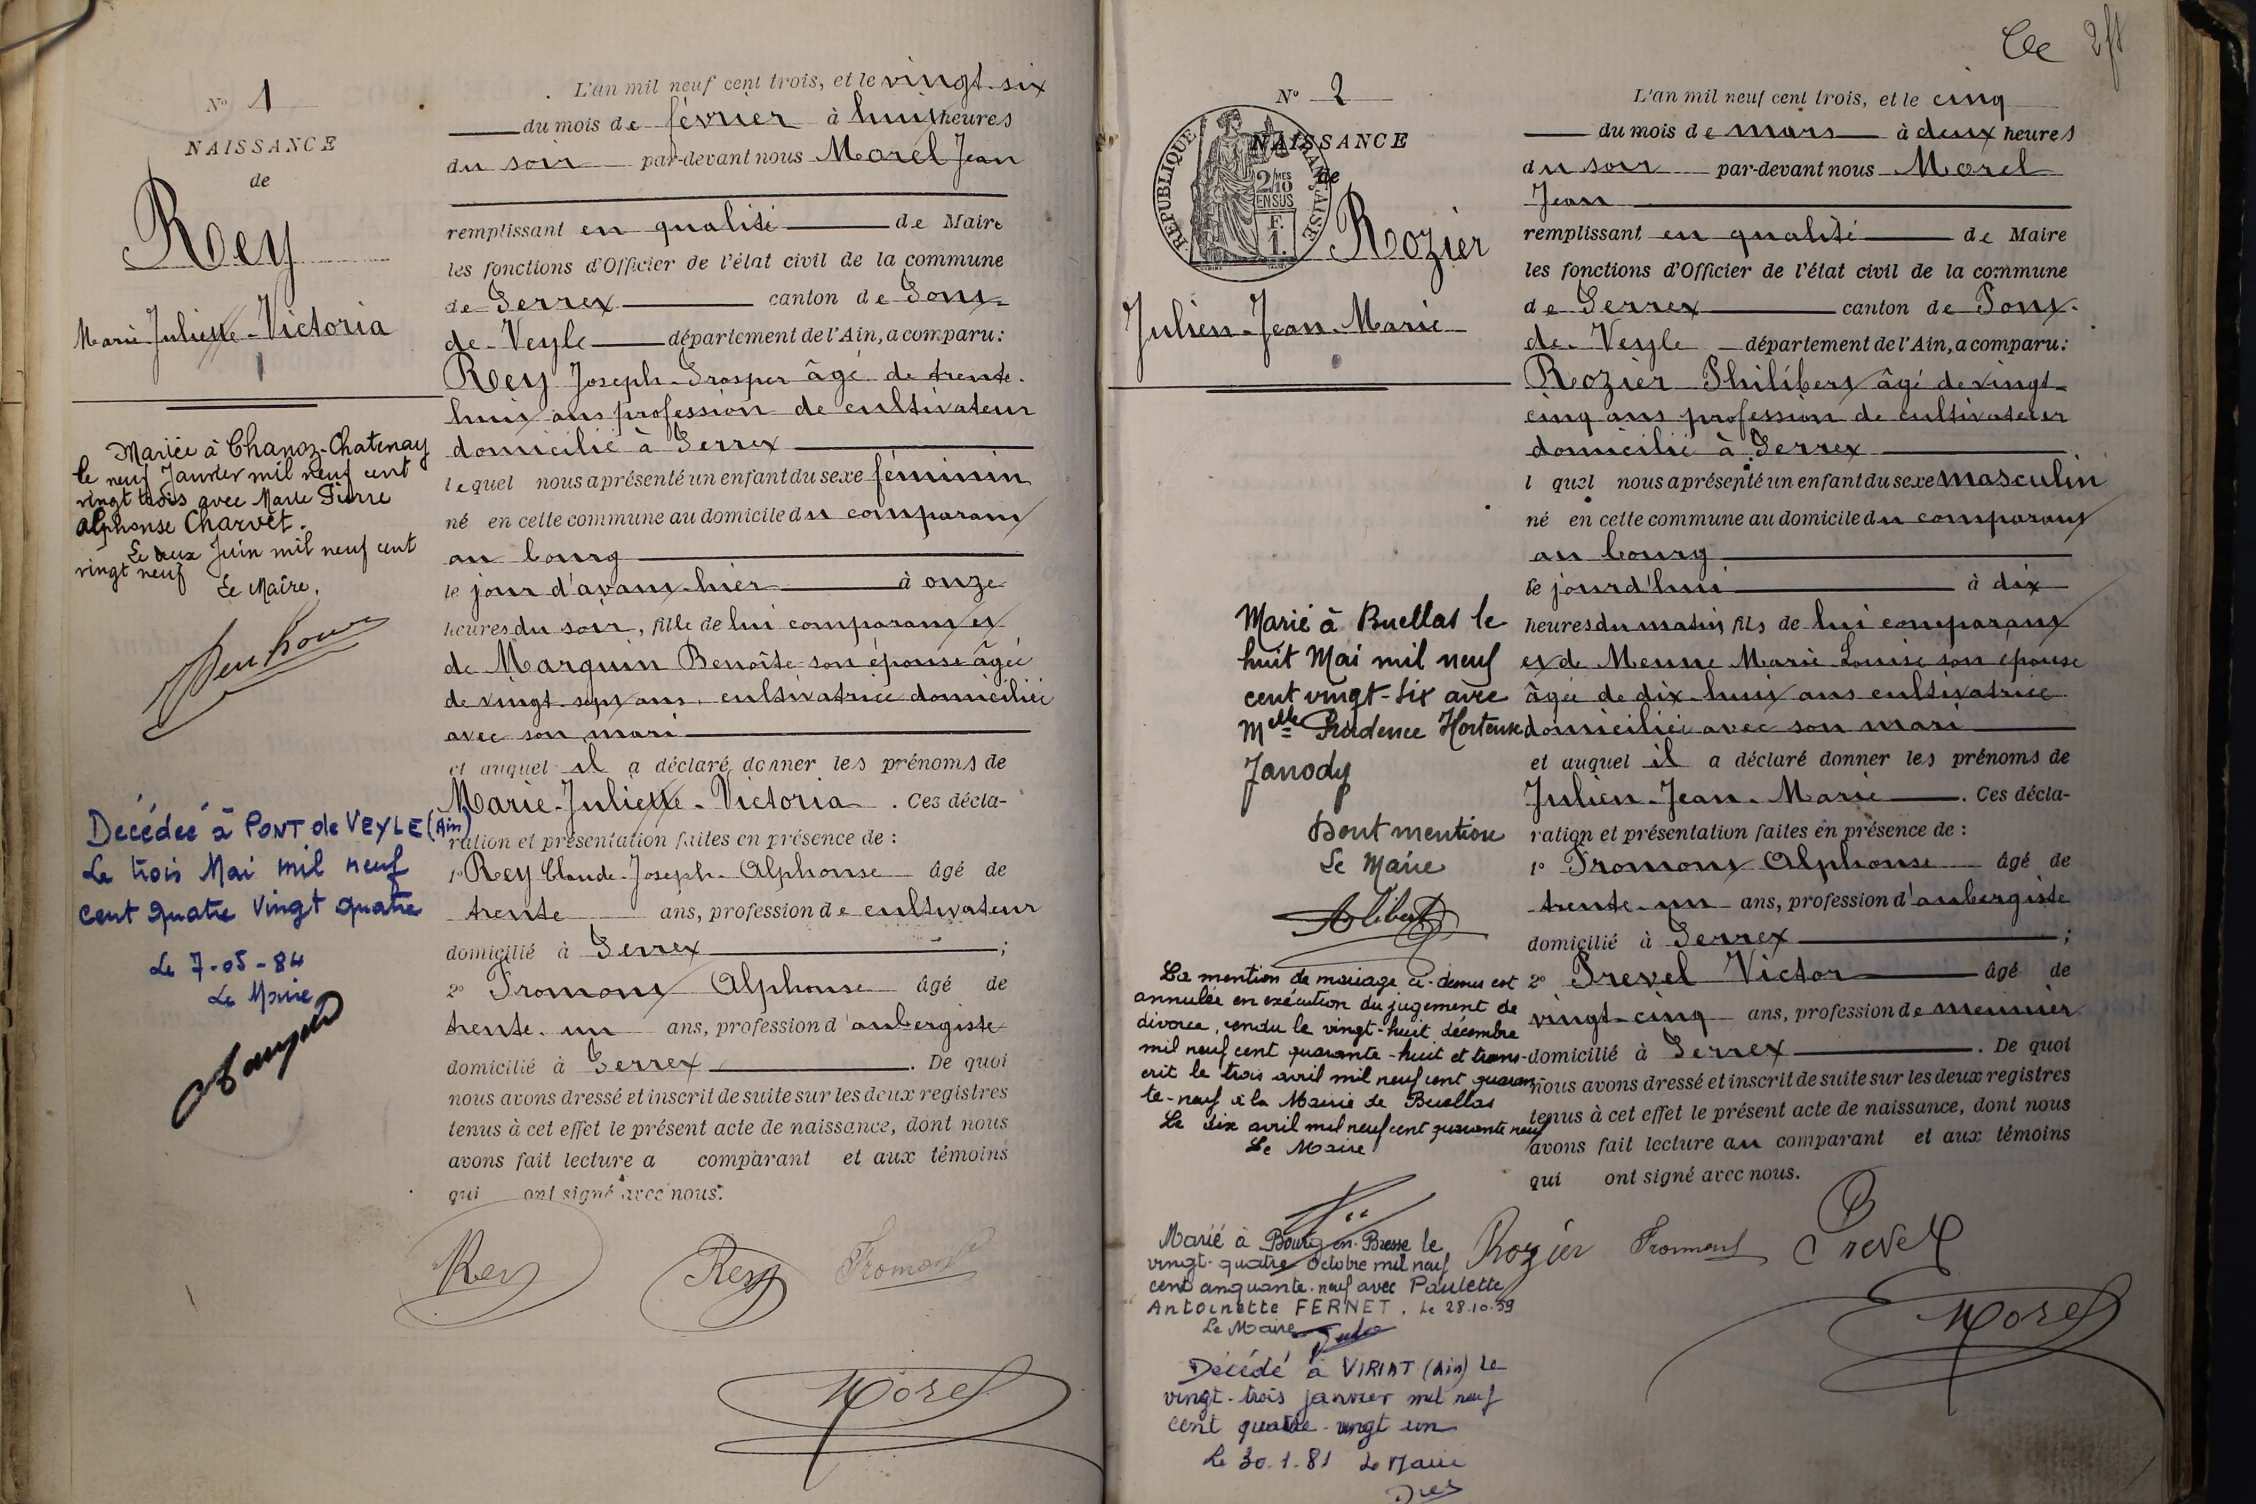 N° 1
NAISSANCE
de
Rey
Marie-Juliette-Victoria
Mariée à Chanoz-Chatenay
le neuf Janvier mil neuf cent
vingt trois avec Marie Pierre
Alphonse Charvet.
Le deux Juin mil neuf cent
vingt neuf
Le Maire.
Décédée à PONT de VEYLE (Ain)
Le trois Mai mil neuf
cent quatre vingt quatre
Le 7-05-84
Le Maire
L'an mil neuf cent trois, et le vingt-six
du mois de février à huit heures
du soir par-devant nous Morel Jean
remplissant en qualité de Maire
les fonctions d'Officier de l'état civil de la commune
de Perrex canton de Pont-
de-Veyle département de l'Ain, a comparu:
Rey Joseph-Prosper âgé de trente-
huit ans profession de cultivateur
domicilié à Perrex
lequel nous a présenté un enfant du sexe féminin
né en cette commune au domicile du comparant
au bourg
le jour d'avant-hier à onze
heures du soir, fille de lui comparant et
de Marguin Benoîte son épouse âgée
de vingt-sept ans, cultivatrice domiciliée
avec son mari
et auquel il a déclaré donner les prénoms de
Marie-Juliette-Victoria. Ces décla-
ration et présentation faites en présence de :
1° Rey Claude-Joseph-Alphonse âgé de
trente ans, profession de cultivateur
domicilié à Perrex ;
2° Fromont Alphonse âgé de
trente-un ans, profession d'aubergiste
domicilié à Perrex. De quoi
nous avons dressé et inscrit de suite sur les deux registres
tenus à cet effet le présent acte de naissance, dont nous
avons fait lecture a comparant et aux témoins
qui ont signé avec nous.
Rey Rey Fromont
Morel
Cle 2 ft
N° 2
NAISSANCE
de
RÉPUBLIQUE FRANÇAISE
2/10 MES
EN SUS
F.
1.
Rozier
Julien-Jean-Marie
Marié à Buellas le
huit Mai mil neuf
cent vingt-six avec
Melle Prudence Hortense
Janody
Dont mention
Le Maire
Alibert
La mention de mariage ci-dessus est
annulée en exécution du jugement de
divorce, rendu le vingt-huit décembre
mil neuf cent quarante-huit et trans-
crit le trois avril mil neuf cent quaran-
te-neuf à la Mairie de Buellas
Le dix avril mil neuf cent quarante neuf
Le Maire
Marié à Bourg-en-Bresse le
vingt-quatre Octobre mil neuf
cent cinquante-neuf avec Paulette
Antoinette FERNET. Le 28.10.59
Le Maire
Décédé à VIRIAT (Ain) Le
vingt-trois janvier mil neuf
cent quatre-vingt un
Le 30.1.81 Le Maire
L'an mil neuf cent trois, et le cinq
du mois de mars à deux heures
du soir par-devant nous Morel
Jean
remplissant en qualité de Maire
les fonctions d'Officier de l'état civil de la commune
de Perrex canton de Pont-
de-Veyle département de l'Ain, a comparu:
Rozier Philibert âgé de vingt-
cinq ans profession de cultivateur
domicilié à Perrex
l quel nous a présenté un enfant du sexe masculin
né en cette commune au domicile du comparant
au bourg
le jourd'hui à dix
heures du matin, fils de lui comparant
et de Meune Marie Louise son épouse
âgée de dix-huit ans cultivatrice
domiciliée avec son mari
et auquel il a déclaré donner les prénoms de
Julien-Jean-Marie. Ces décla-
ration et présentation faites en présence de :
1° Fromont Alphonse âgé de
trente-un ans, profession d'aubergiste
domicilié à Perrex ;
2° Prevel Victor âgé de
vingt-cinq ans, profession de meunier
domicilié à Perrex. De quoi
nous avons dressé et inscrit de suite sur les deux registres
tenus à cet effet le présent acte de naissance, dont nous
avons fait lecture au comparant et aux témoins
qui ont signé avec nous.
Rozier Fromont Prevel
Morel